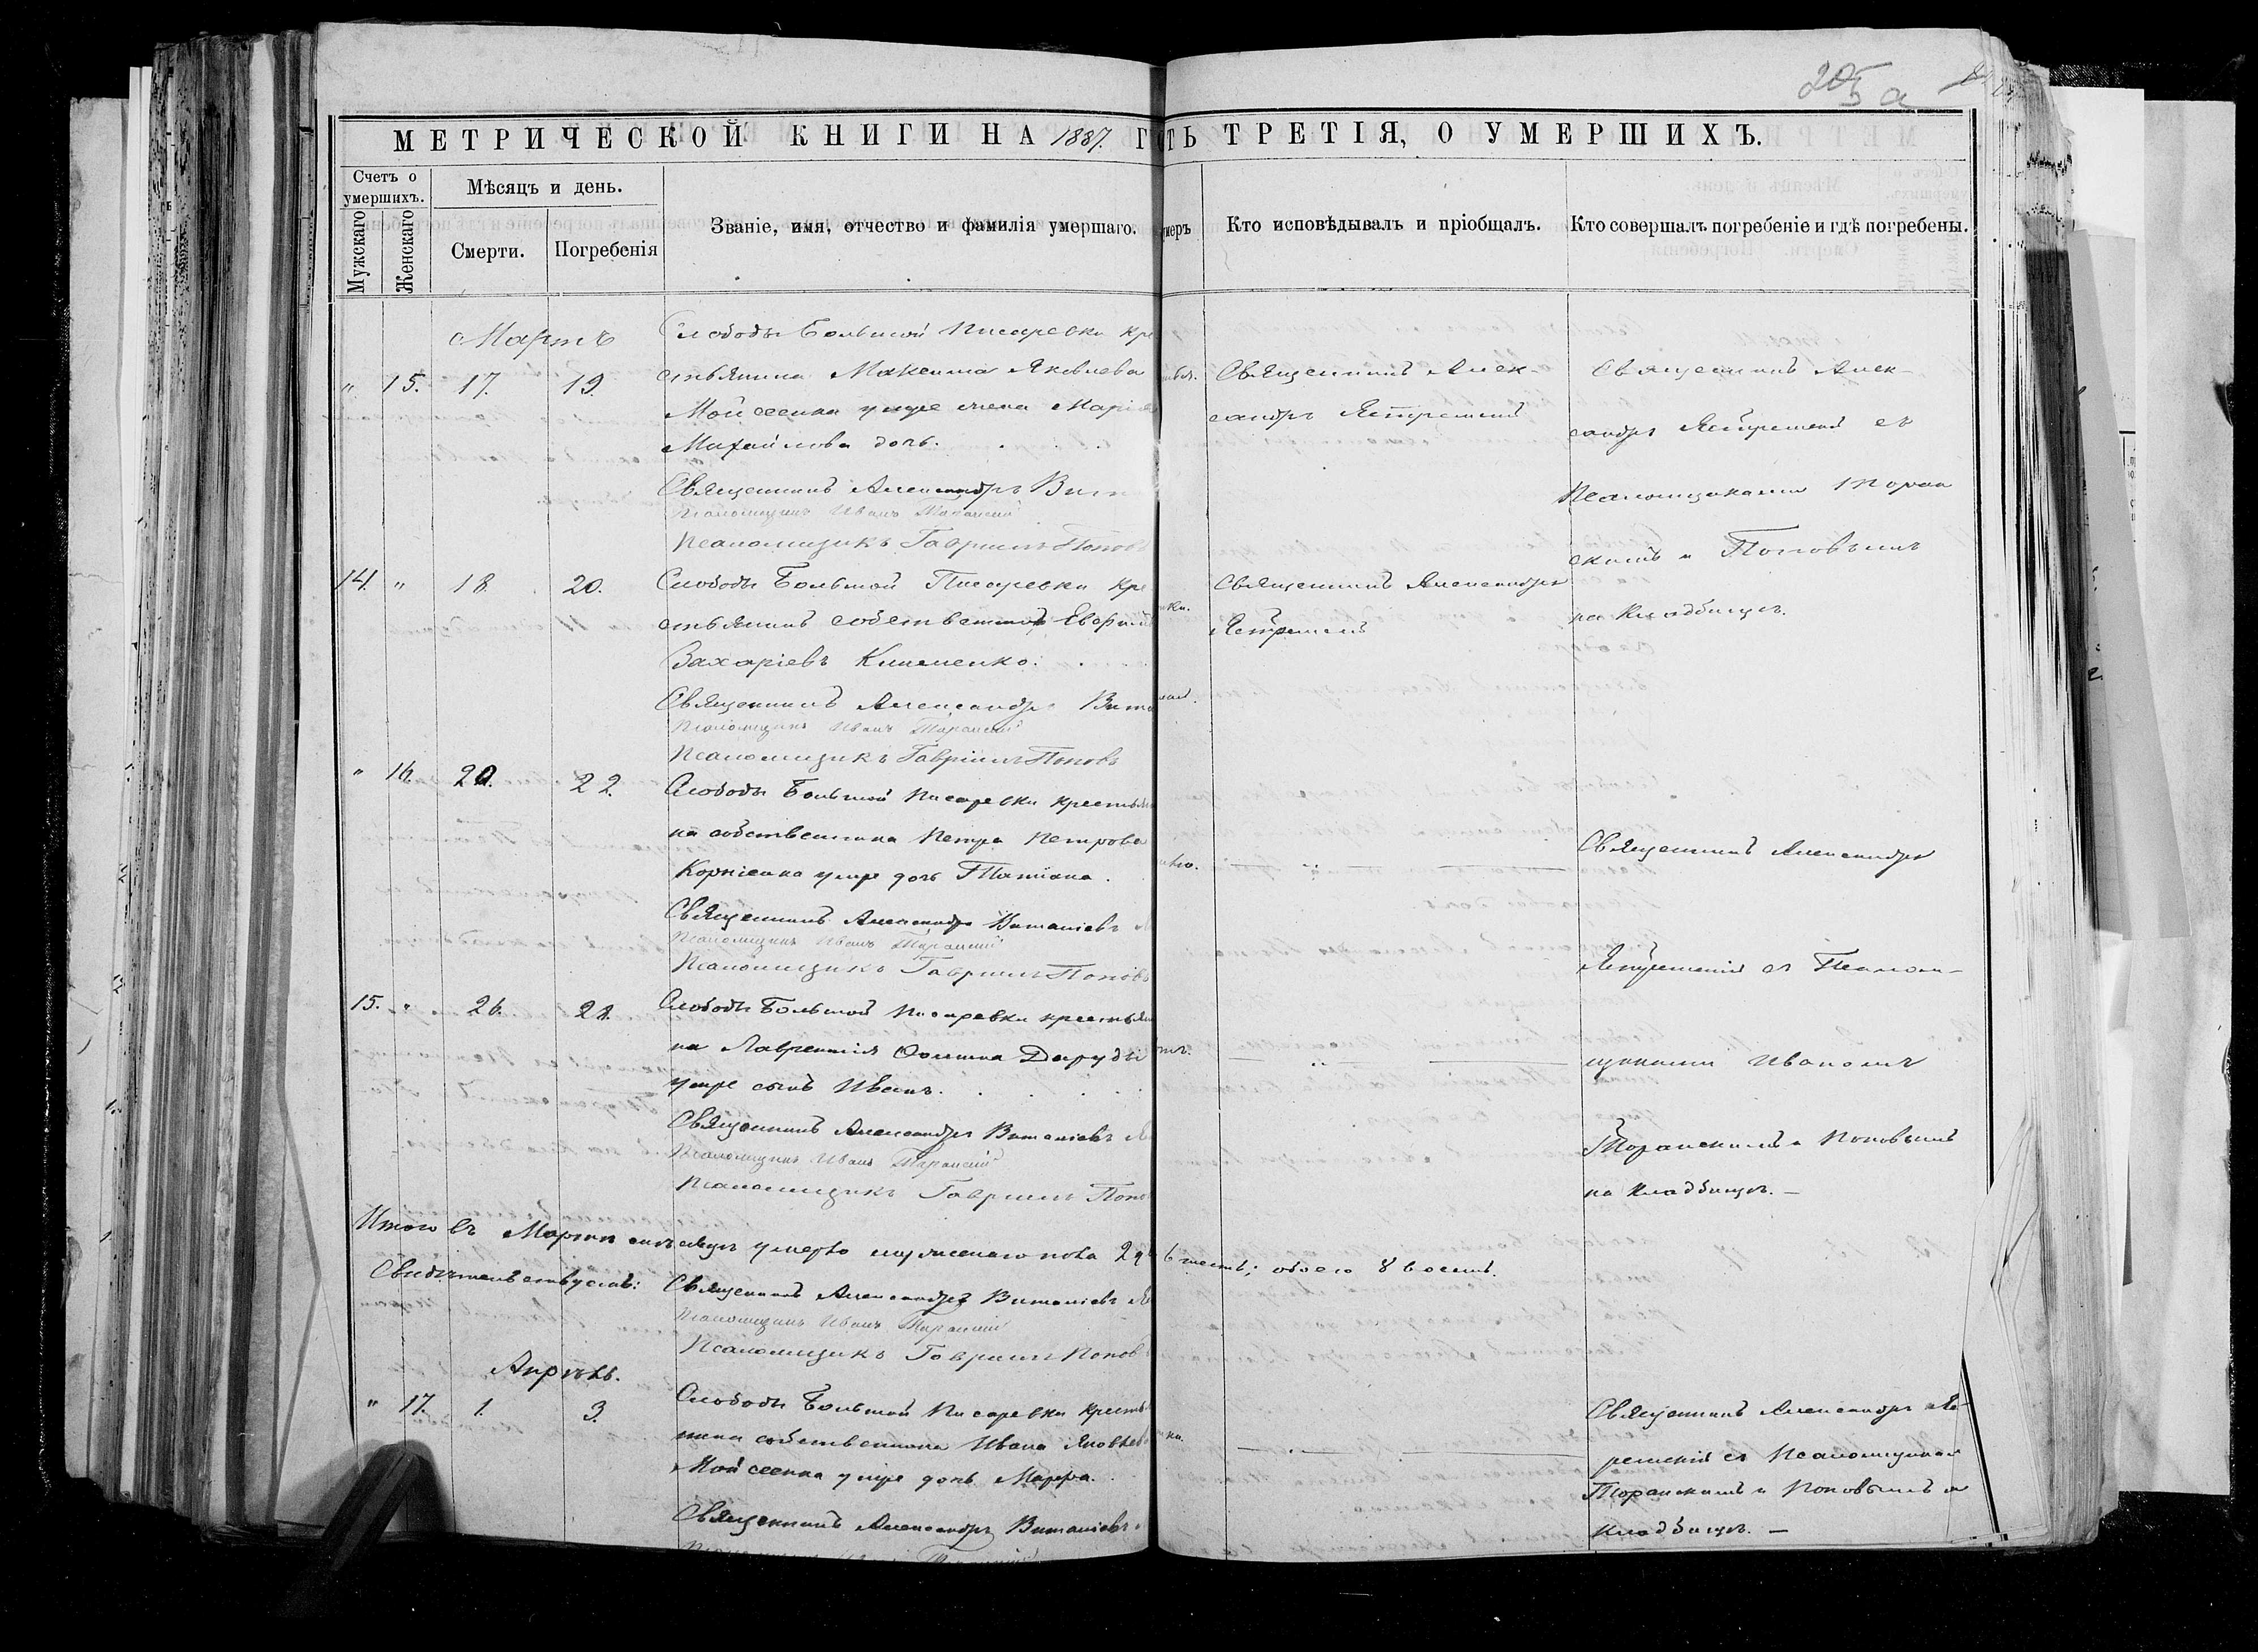 205 а
МЕТРИЧЕСКОЙ КНИГИ НА 1887. Г
ТЬ ТРЕТІЯ, О УМЕРШИХЪ.
Счетъ о умершихъ.
Мужскаго
Женскаго
Мѣсяцъ и день.
Смерти.
Погребенія
Званіе, имя, отчество и фамилія умершаго.
меръ
Кто исповѣдывалъ и пріобщалъ.
Кто совершалъ погребеніе и гдѣ погребены.
Мартъ
" 15. 17. 19.
Слободы Большой Писаревки кре
стьянина Максима Яковлева
Мойсеенка умре жена Марія
Михайлова дочь.
Священникъ Александръ Вит
Псаломщикъ Иванъ Таранскій
Псаломщикъ Гавріилъ Поповъ
Священникъ Алек-
сандръ Ястремскій
Священникъ Алек-
сандръ Ястремскій съ
Псаломщиками Торан
скимъ и Поповымъ
на кладбищѣ.
14. " 18. 20.
Слободы Большой Писаревки кре
стьянинъ собственникъ Евфимій
Захаріевъ Клименко.
Священникъ Александръ Вита
Псаломщикъ Иванъ Таранскій
Псаломщикъ Гавріилъ Поповъ
Священникъ Александръ
Ястремскій
" 16. 20. 22.
Слободы Большой Писаревки крестьян
на собственника Петра Петрова
Корніенка умре дочь Татіана.
Священникъ Александръ Виталіевъ
Псаломщикъ Иванъ Таранскій
Псаломщикъ Гавріилъ Поповъ
Священникъ Александръ
Ястремскій съ Псалом-
щиками Иваномъ
Торанскимъ и Поповымъ
на кладбищѣ. —
15. " 26. 28.
Слободы Большой Писаревки крестьян
на Лаврентія Ѳомина Даруды
умре сынъ Иванъ.
Священникъ Александръ Виталіевъ
Псаломщикъ Иванъ Таранскій
Псаломщикъ Гавріилъ Попов
Итого въ Мартѣ мѣсяцѣ умерло мужескаго пола 2
6 шесть; обоего 8 восемь.
Свидѣтельствуемъ: Священникъ Александръ Виталіевъ Я
Псаломщикъ Иванъ Таранскій
Псаломщикъ Гавріилъ Попов
Апрѣль.
" 17. 1. 3.
Слободы Большой Писаревки крестья
нина собственника Ивана Яковлева
Мойсеенка умре дочь Марѳа.
Священникъ Александръ Виталіевъ
Священникъ Александръ Яс
ремскій съ Псаломщиками
Торанскимъ и Поповымъ н
кладбищѣ. —